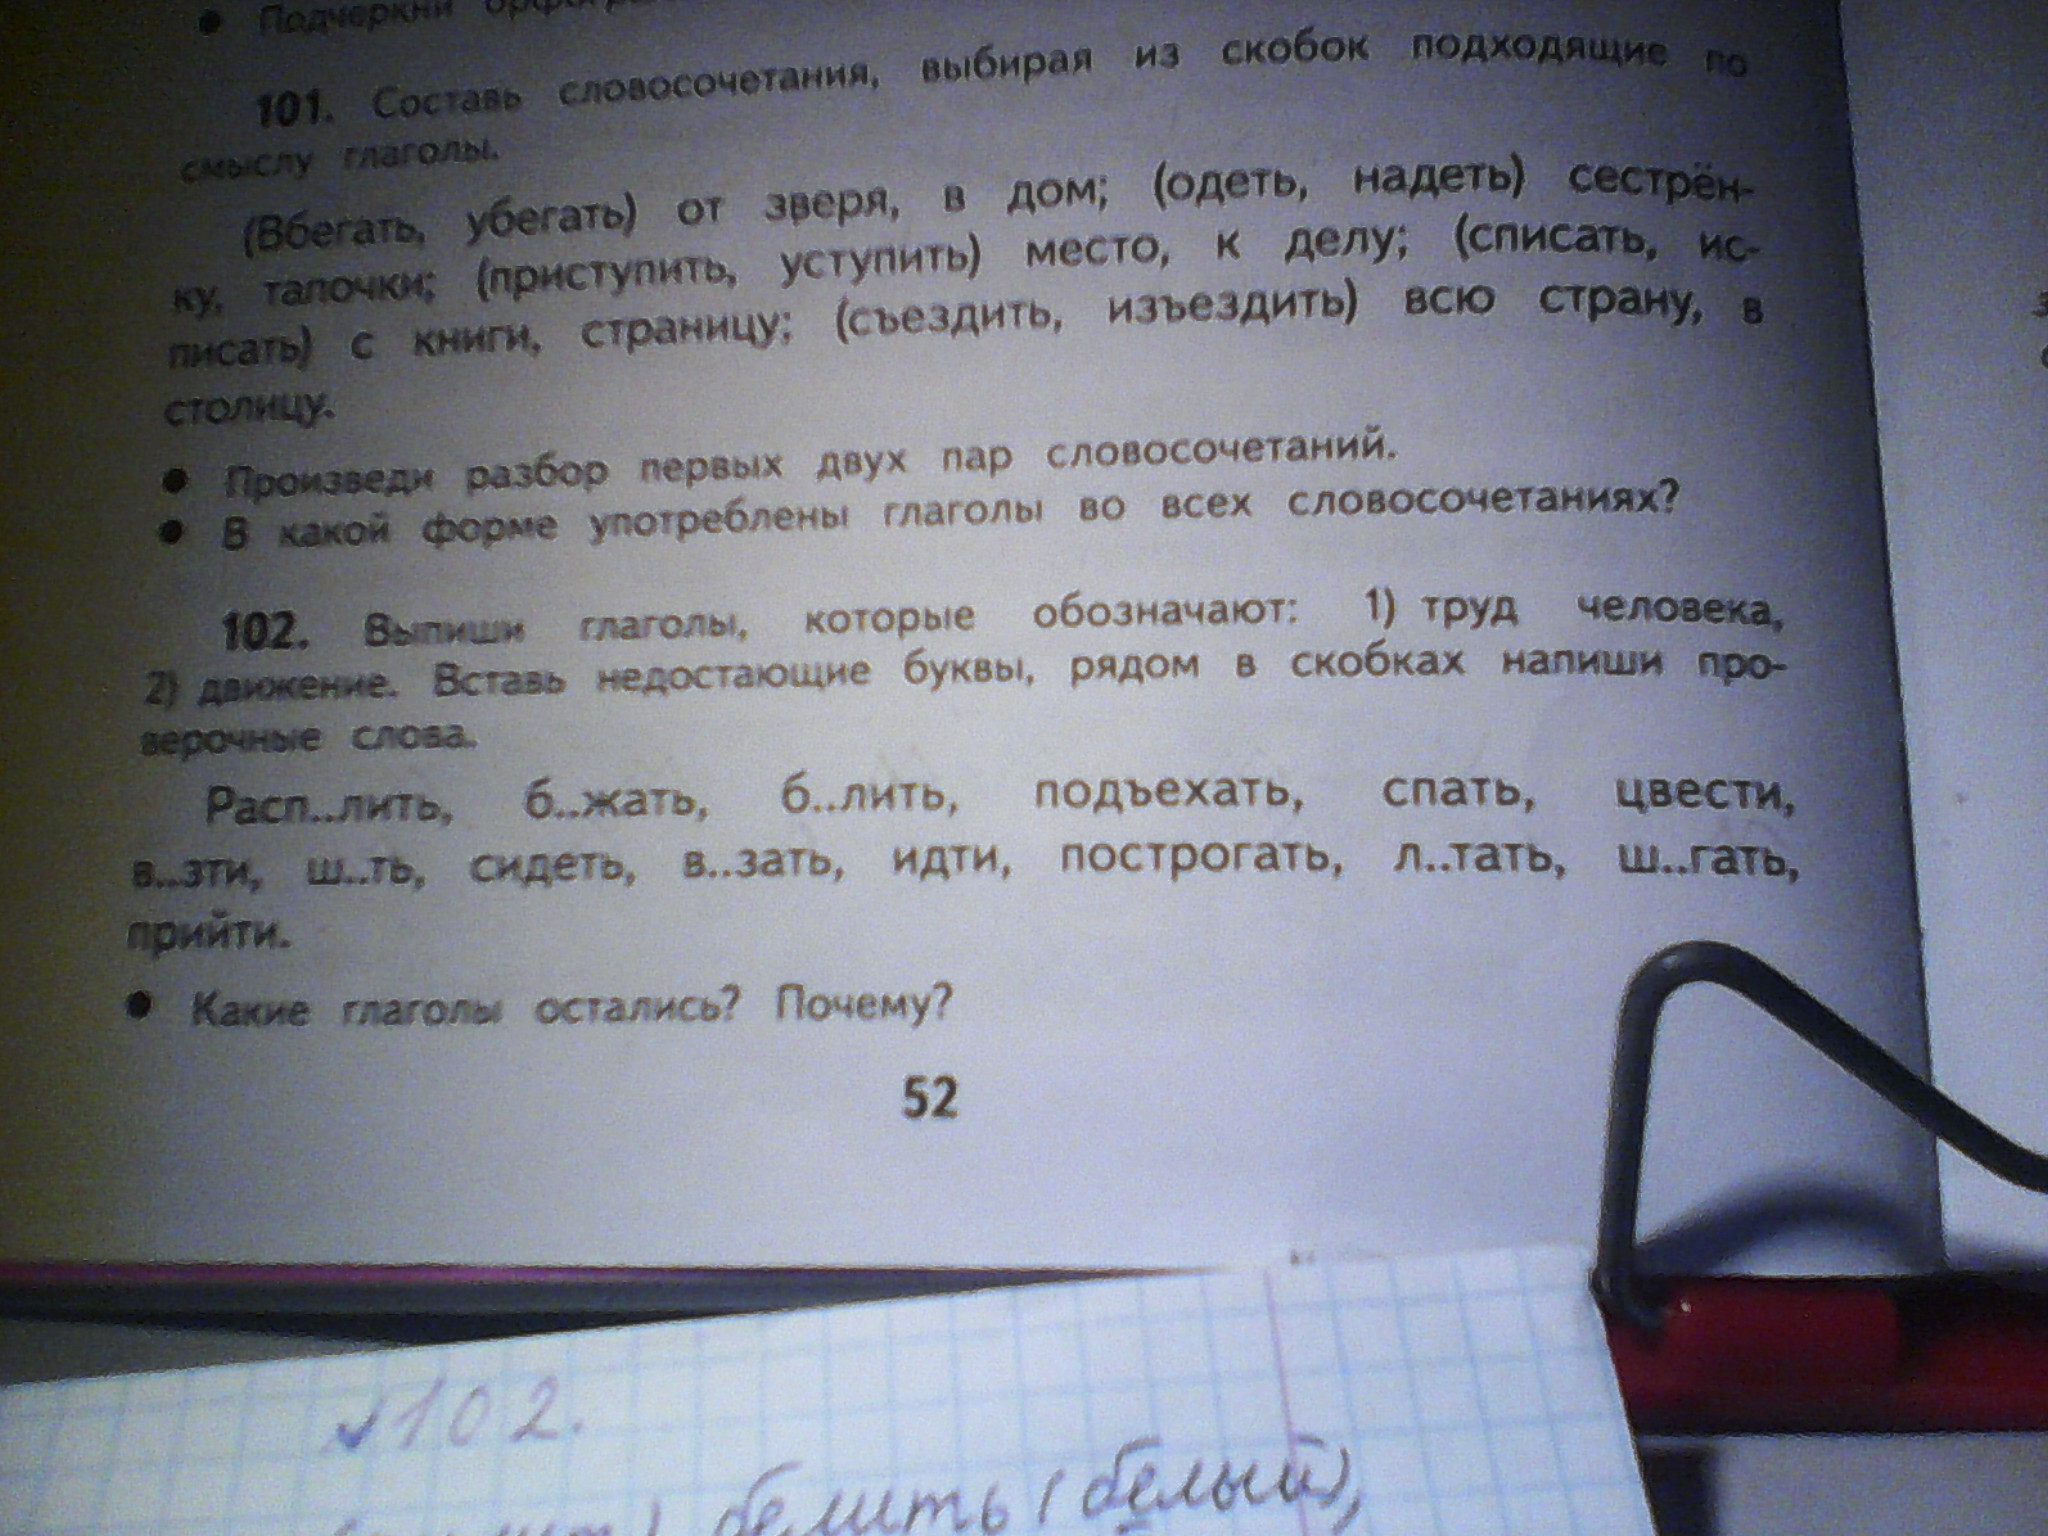 Подчеркни
101. Составь словосочетания, выбирая из скобок подходящие по
смыслу глаголы.
(Вбегать, убегать) от зверя, в дом; (одеть, надеть) сестрён-
ку, тапочки; (приступить, уступить) место, к делу; (списать, ис-
писать) с книги, страницу; (съездить, изъездить) всю страну, в
столицу.
• Произведи разбор первых двух пар словосочетаний.
• В какой форме употреблены глаголы во всех словосочетаниях?
102. Выпиши глаголы, которые обозначают: 1) труд человека,
2) движение. Вставь недостающие буквы, рядом в скобках напиши про-
верочные слова.
Расп..лить, б..жать, б..лить, подъехать, спать, цвести,
в..зти, ш..ть, сидеть, в..зать, идти, построгать, л..тать, ш..гать,
прийти.
• Какие глаголы остались? Почему?
52
№102.
белить (белый),